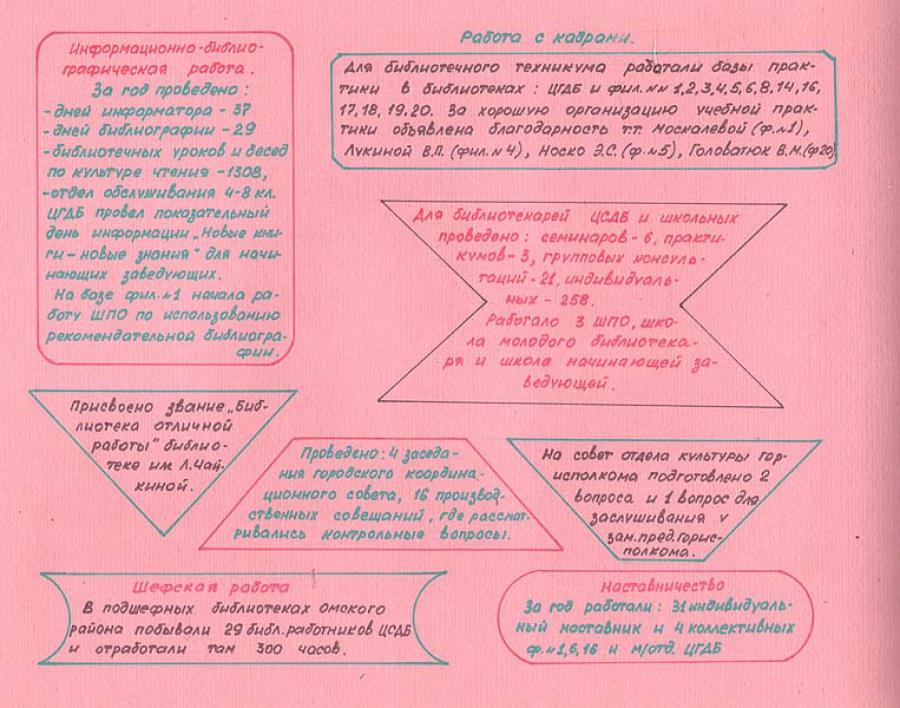 Информационно-библио-
графическая работа.
За год проведено:
-дней информатора - 37
-дней библиографии - 29
-библиотечных уроков и бесед
по культуре чтения - 1308,
-отдел обслуживания 4-8 кл.
ЦГДБ провел показательный
день информации „Новые кни-
ги - новые знания" для начи-
нающих заведующих.
На базе фил.№1 начала ра-
боту ШПО по использованию
рекомендательной библиогра-
фии.
Работа с кадрами.
Для библиотечного техникума работали базы прак-
тики в библиотеках: ЦГДБ и фил.№№ 1,2,3,4,5,6,8,14,16,
17,18,19,20. За хорошую организацию учебной прак-
тики объявлена благодарность т.т. Москалевой (ф.№1),
Лукиной В.П. (фил.№4), Носко Э.С. (ф.№5), Головатюк В.М. (ф20)
Для библиотекарей ЦСДБ и школьных
проведено: семинаров - 6, практи-
кумов - 3, групповых консуль-
таций - 21, индивидуаль-
ных - 258.
Работало 3 ШПО, шко-
ла молодого библиотека-
ря и школа начинающей за-
ведующей.
Присвоено звание „Биб-
лиотека отличной
работы" библио-
теке им. Л.Чай-
киной.
Проведено: 4 заседа-
ния городского координа-
ционного совета, 16 производ-
ственных совещаний, где рассмат-
ривались контрольные вопросы.
На совет отдела культуры гор-
исполкома подготовлено 2
вопроса и 1 вопрос для
заслушивания у
зам.пред.горис-
полкома.
Шефская работа
В подшефных библиотеках омского
района побывали 29 библ.работников ЦСДБ
и отработали там 300 часов.
Наставничество
За год работали: 31 индивидуаль-
ный наставник и 4 коллективных
ф.№1,6,16 и м/отд. ЦГДБ